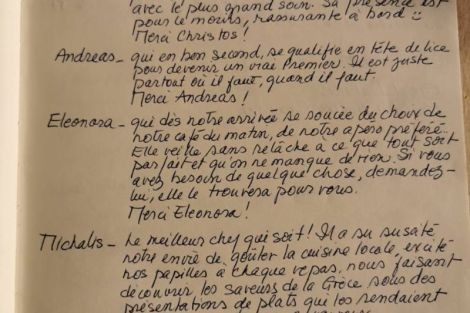 avec le plus grand soin. Sa présence est
pour le moins, rassurante à bord
Merci Christos!
Andreas - qui en bon second, se qualifie en tête de lice
pour devenir un vrai Premier. Il est juste
partout où il faut, quand il faut.
Merci Andreas!
Eleonora - qui dès notre arrivée se soucie du choix de
notre café du matin, de notre apéro préféré.
Elle veille sans relâche à ce que tout soit
parfait et qu'on ne manque de rien. Si vous
avez besoin de quelque chose, demandez-
lui, elle le trouvera pour vous.
Merci Eleonora!
Michalis - Le meilleur chef qui soit! Il a su suscité
notre envie de goûter la cuisine locale, excité
nos papilles à chaque repas, nous faisant
découvrir les saveurs de la Grèce sous des
présentations de plats qui les rendaient